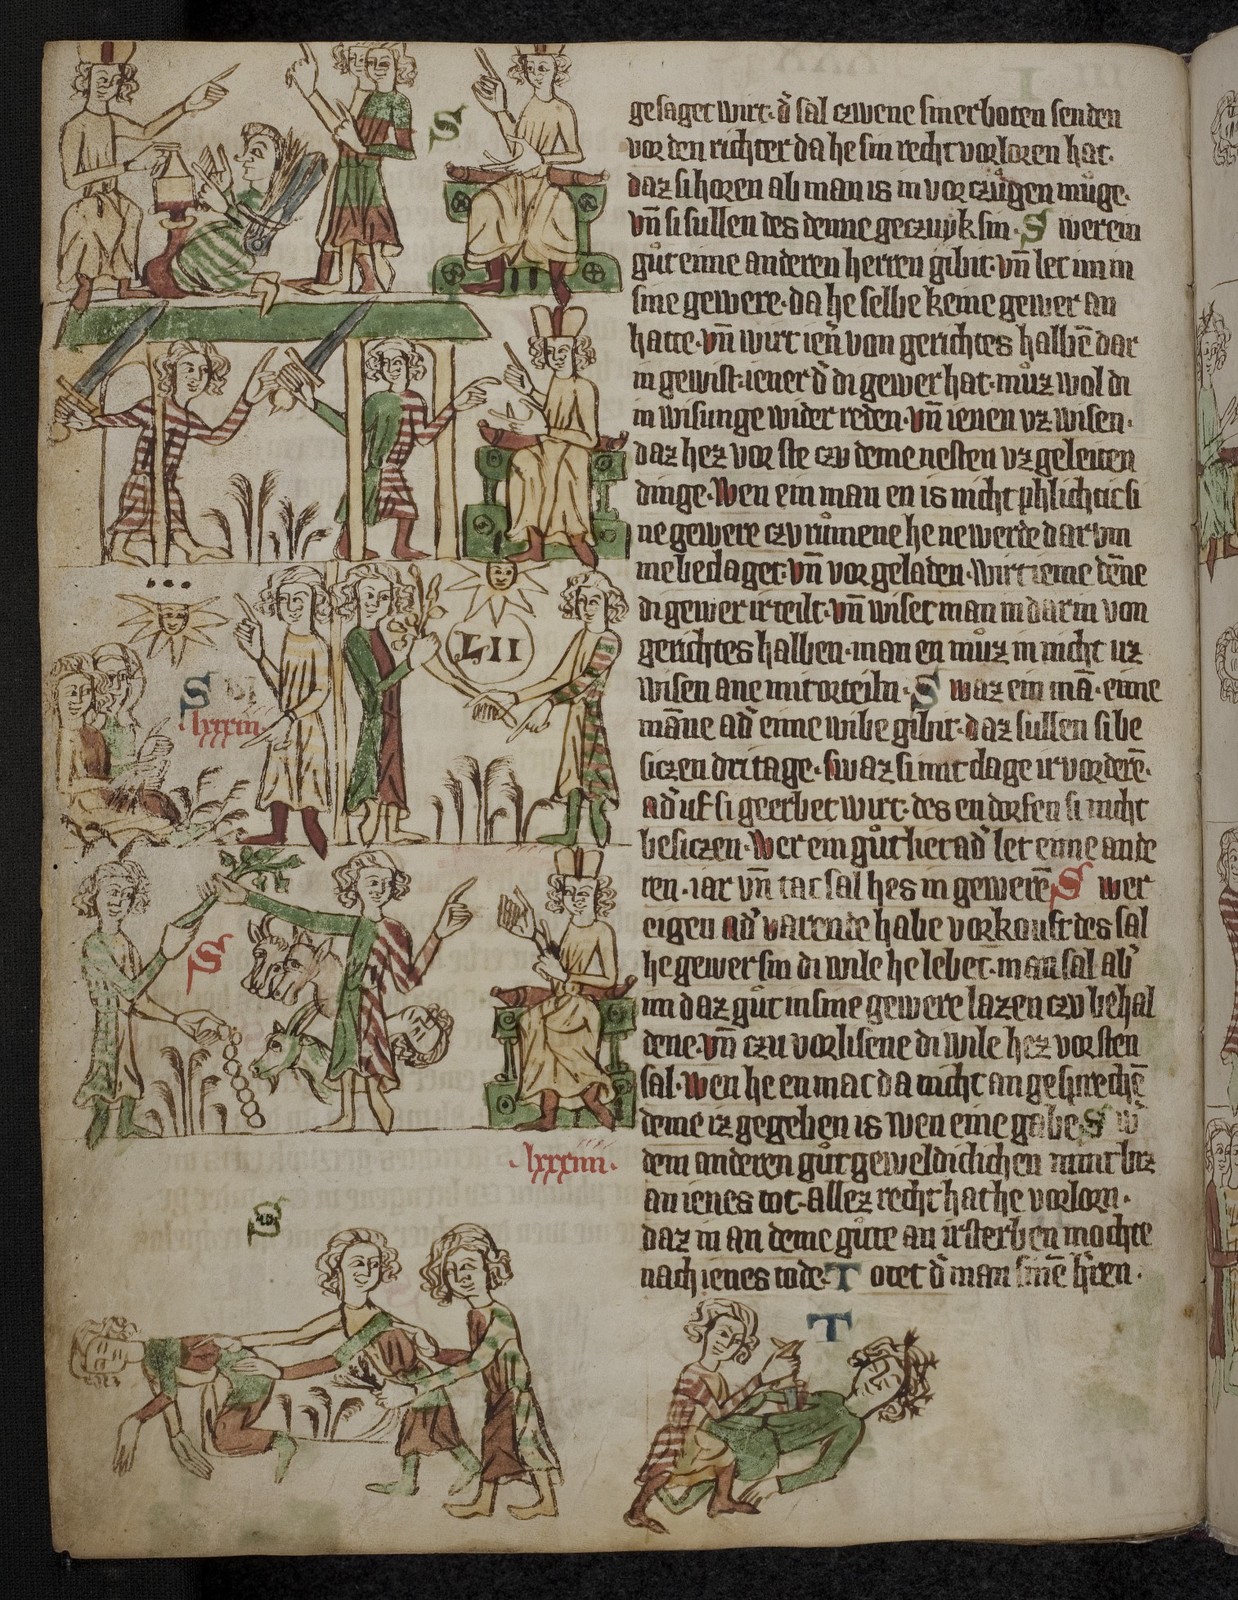 gesaget wirt· d̕ sal czwene sinerboten senden
vor den richter da he sin recht vorloren hat·
daz si horen ab man is in vor czůgen můge·
vn̄ si sullen des denne geczuyk sin· S werein
gůt eime anderen herren gibit· vn̄ let im in
sine gewere· da he selbe keine gewer an
hatte· vn̄ wirt ien̄ von gerichtes halbē dar
in gewist· iener d̕ di gewer hat· můz wol di
in wisunge wider reden· vn̄ ienen vz wisen·
daz hez vor ste czu deme nesten vz geleiten
dinge· Wen ein man en is nicht phlichtic si
ne gewere czu růmene he newerde dar vm
me bedaget· vn̄ vor geladen· wirt ieme dēne
di gewer ir teilt· vn̄ wiset man in dar in von
gerichtes halben· man en můz in nicht uz
wisen ane mit orteiln· S waz ein mā· eime
māne ad̕ eime wibe gibit· daz sullen si be
siczen dri tage· swaz si mit clage ir vorderē·
ad̕ uf si geerbet wirt· des en dorfen si nicht
besiczen· Wer ein gůt liet ad̕ let eime ande
ren· iar vn̄ tac sal hes in gewerē S wer
eigen ad̕ varende habe vorkouft des sal
he gewer sin di wile he lebet· man sal ab̕
im daz gůt in sine gewere lazen czu behal
dene· vn̄ czu vorlisene di wile hez vorsten
sal· Wen he en mac da nicht an gesprechē
deme iz gegeben is wen eine gabe S w̕
dem anderen gůt geweldiclichen nimt biz
an ienes tot· allez recht hat he vorlorn·
daz in an deme gůte an irsterben mochte
nach ienes tode· T otet d̕ man sinē h̕ren·
S
S
·lxxxiii·
LII
S
·lxxxiiii·
S
T